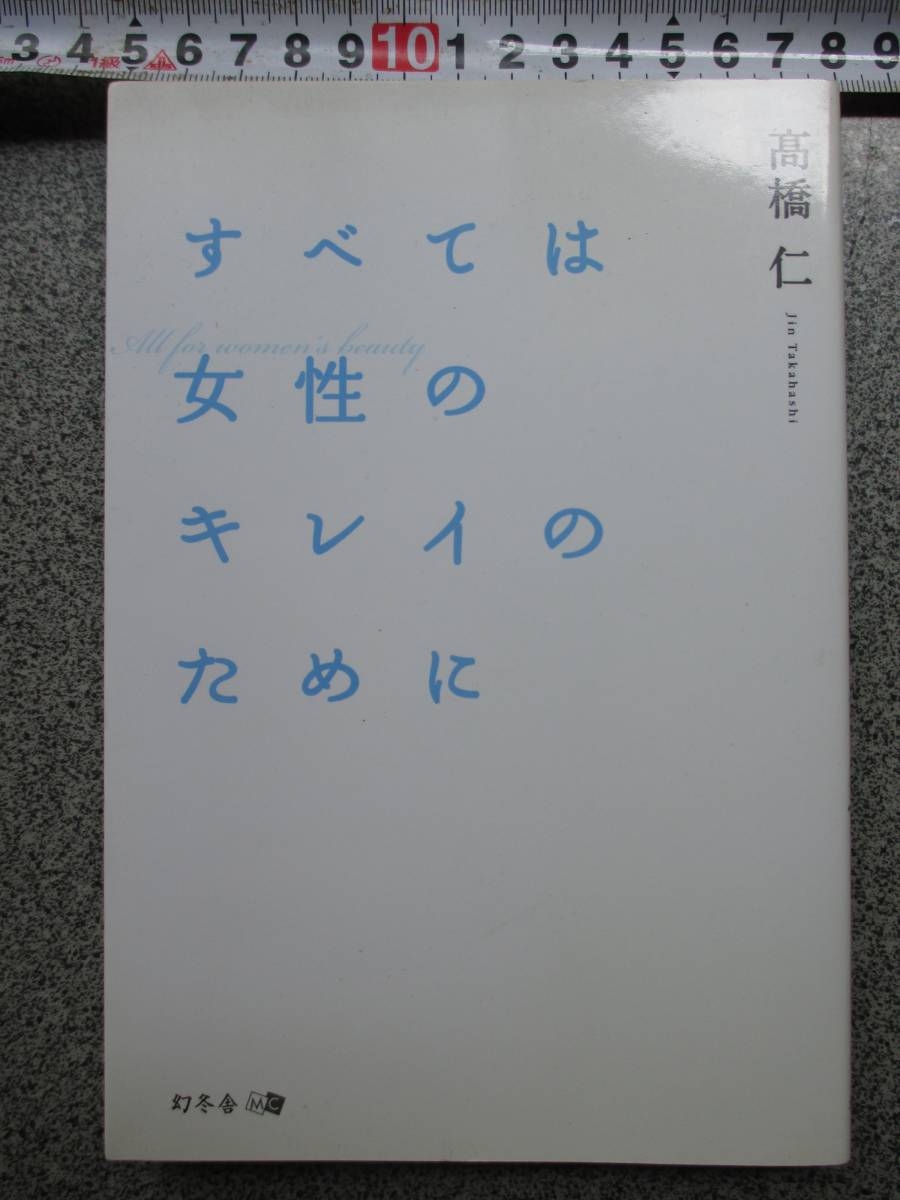 3 4 5 6 7 8 9 10 1 2 3 4 5 6 7 8 9
髙橋 仁
Jin Takahashi
すべては
All for women's beauty
女性の
キレイの
ために
幻冬舎 MC